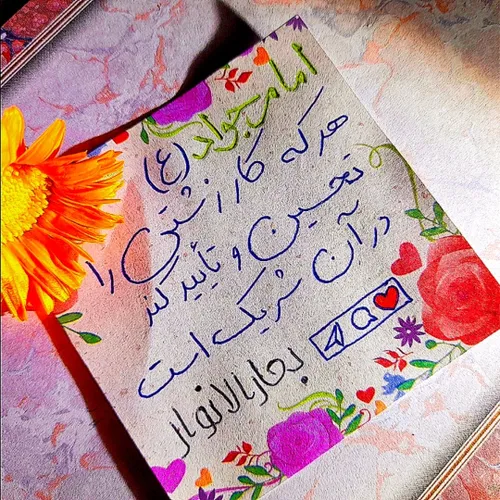 امام جواد (ع)
هر که کار زشتی را
تحسین و تأیید کند
در آن شریک است
بحارالانوار